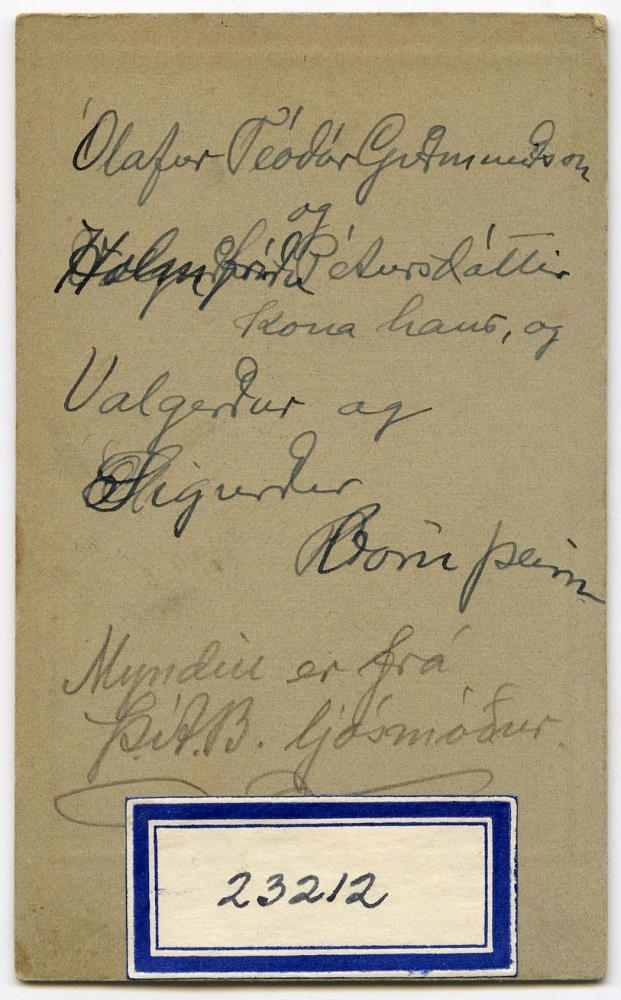 Ólafur Téódór Guðmundson
og
Holmfríðu Pétursdóttir
kona hans, og
Valgerður og
Sigurður
Börn þeirra
Myndin er frá
Þ.Á.B. ljósmóður.
23212